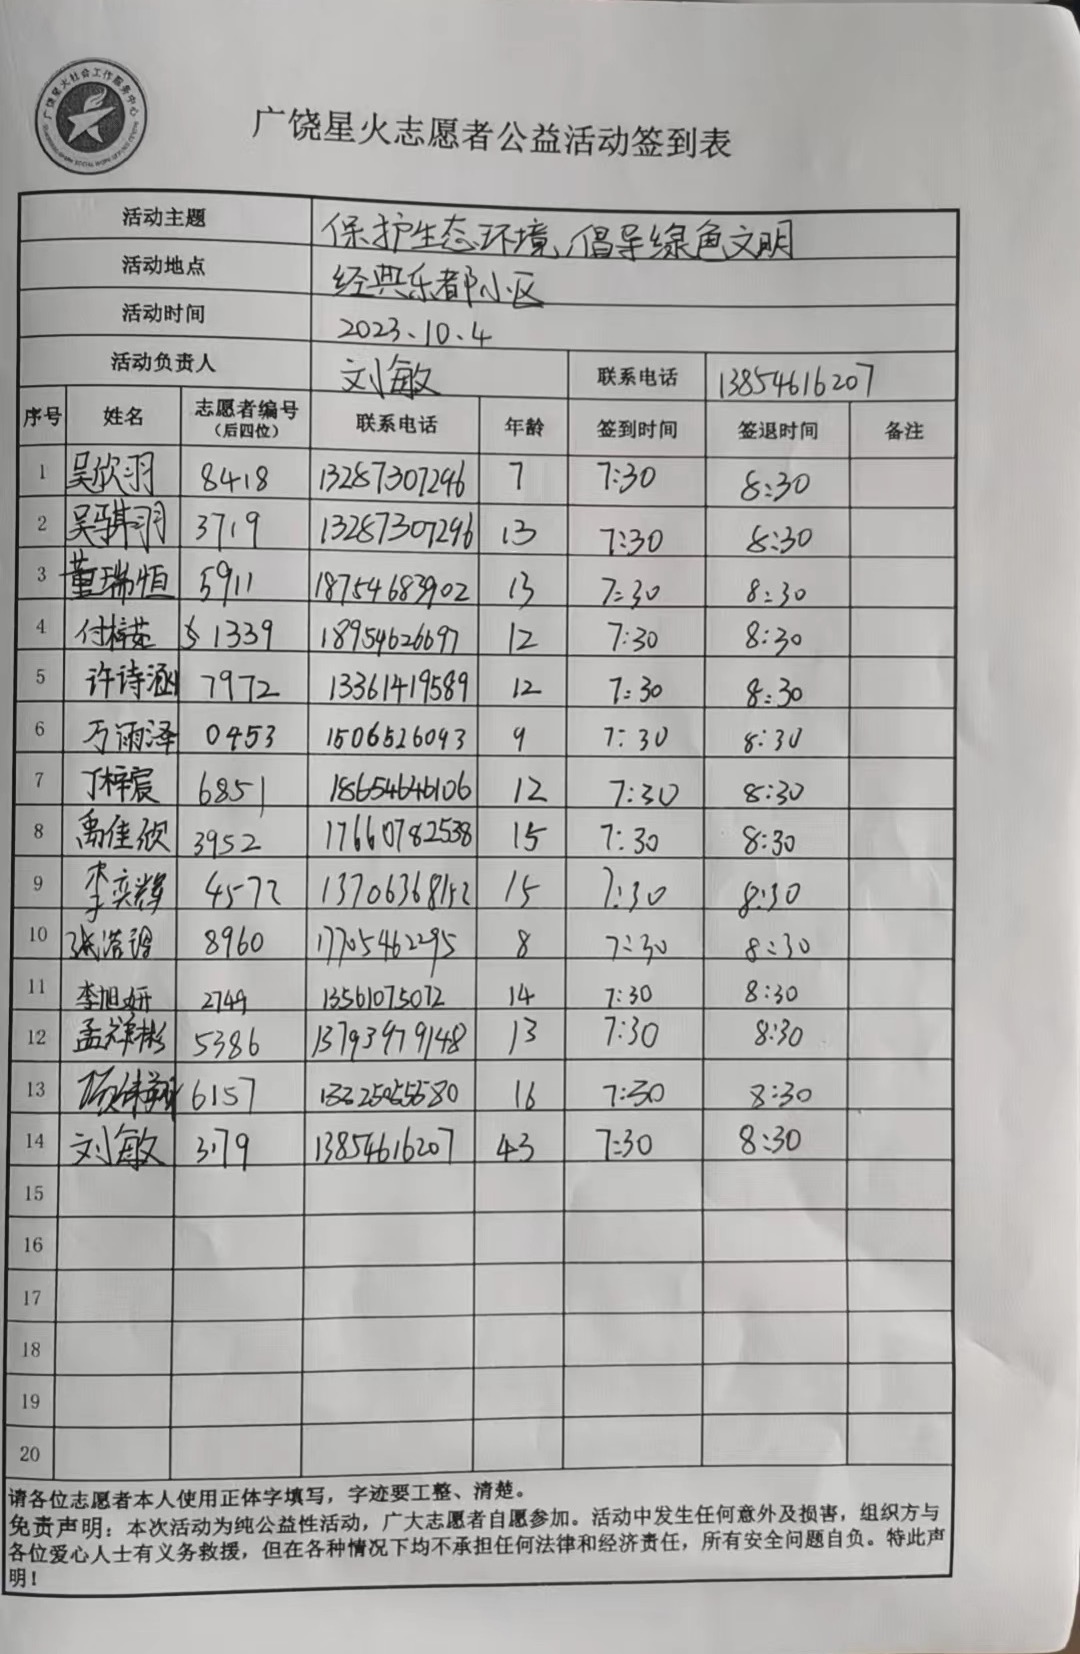 广饶星火社会工作服务中心
广饶星火志愿者公益活动签到表
活动主题 保护生态环境,倡导绿色文明
活动地点 经典乐都小区
活动时间 2023、10、4
活动负责人 刘敏 联系电话 13854616207
序号 姓名 志愿者编号(后四位) 联系电话 年龄 签到时间 签退时间 备注
1 吴欣羽 8418 13287307296 7 7:30 8:30
2 吴骐羽 3719 13287307296 13 7:30 8:30
3 董瑞恒 5911 18754683902 13 7:30 8:30
4 付梓茹 1339 18954626697 12 7:30 8:30
5 许诗涵 7972 13361419589 12 7:30 8:30
6 雨泽 0453 1506526093 9 7:30 8:30
7 丁梓宸 6851 18654646106 12 7:30 8:30
8 禹佳欣 3952 17660782538 15 7:30 8:30
9 李奕辉 4572 13706368152 15 7:30 8:30
10 张浩 8960 17705462295 8 7:30 8:30
11 李旭妍 2749 13561075072 14 7:30 8:30
12 孟祥彬 5386 13793979148 13 7:30 8:30
13 6157 16 7:30 8:30
14 刘敏 3179 13854616207 43 7:30 8:30
15
16
17
18
19
20
请各位志愿者本人使用正体字填写，字迹要工整、清楚。
免责声明：本次活动为纯公益性活动，广大志愿者自愿参加。活动中发生任何意外及损害，组织方与
各位爱心人士有义务救援，但在各种情况下均不承担任何法律和经济责任，所有安全问题自负。特此声
明！